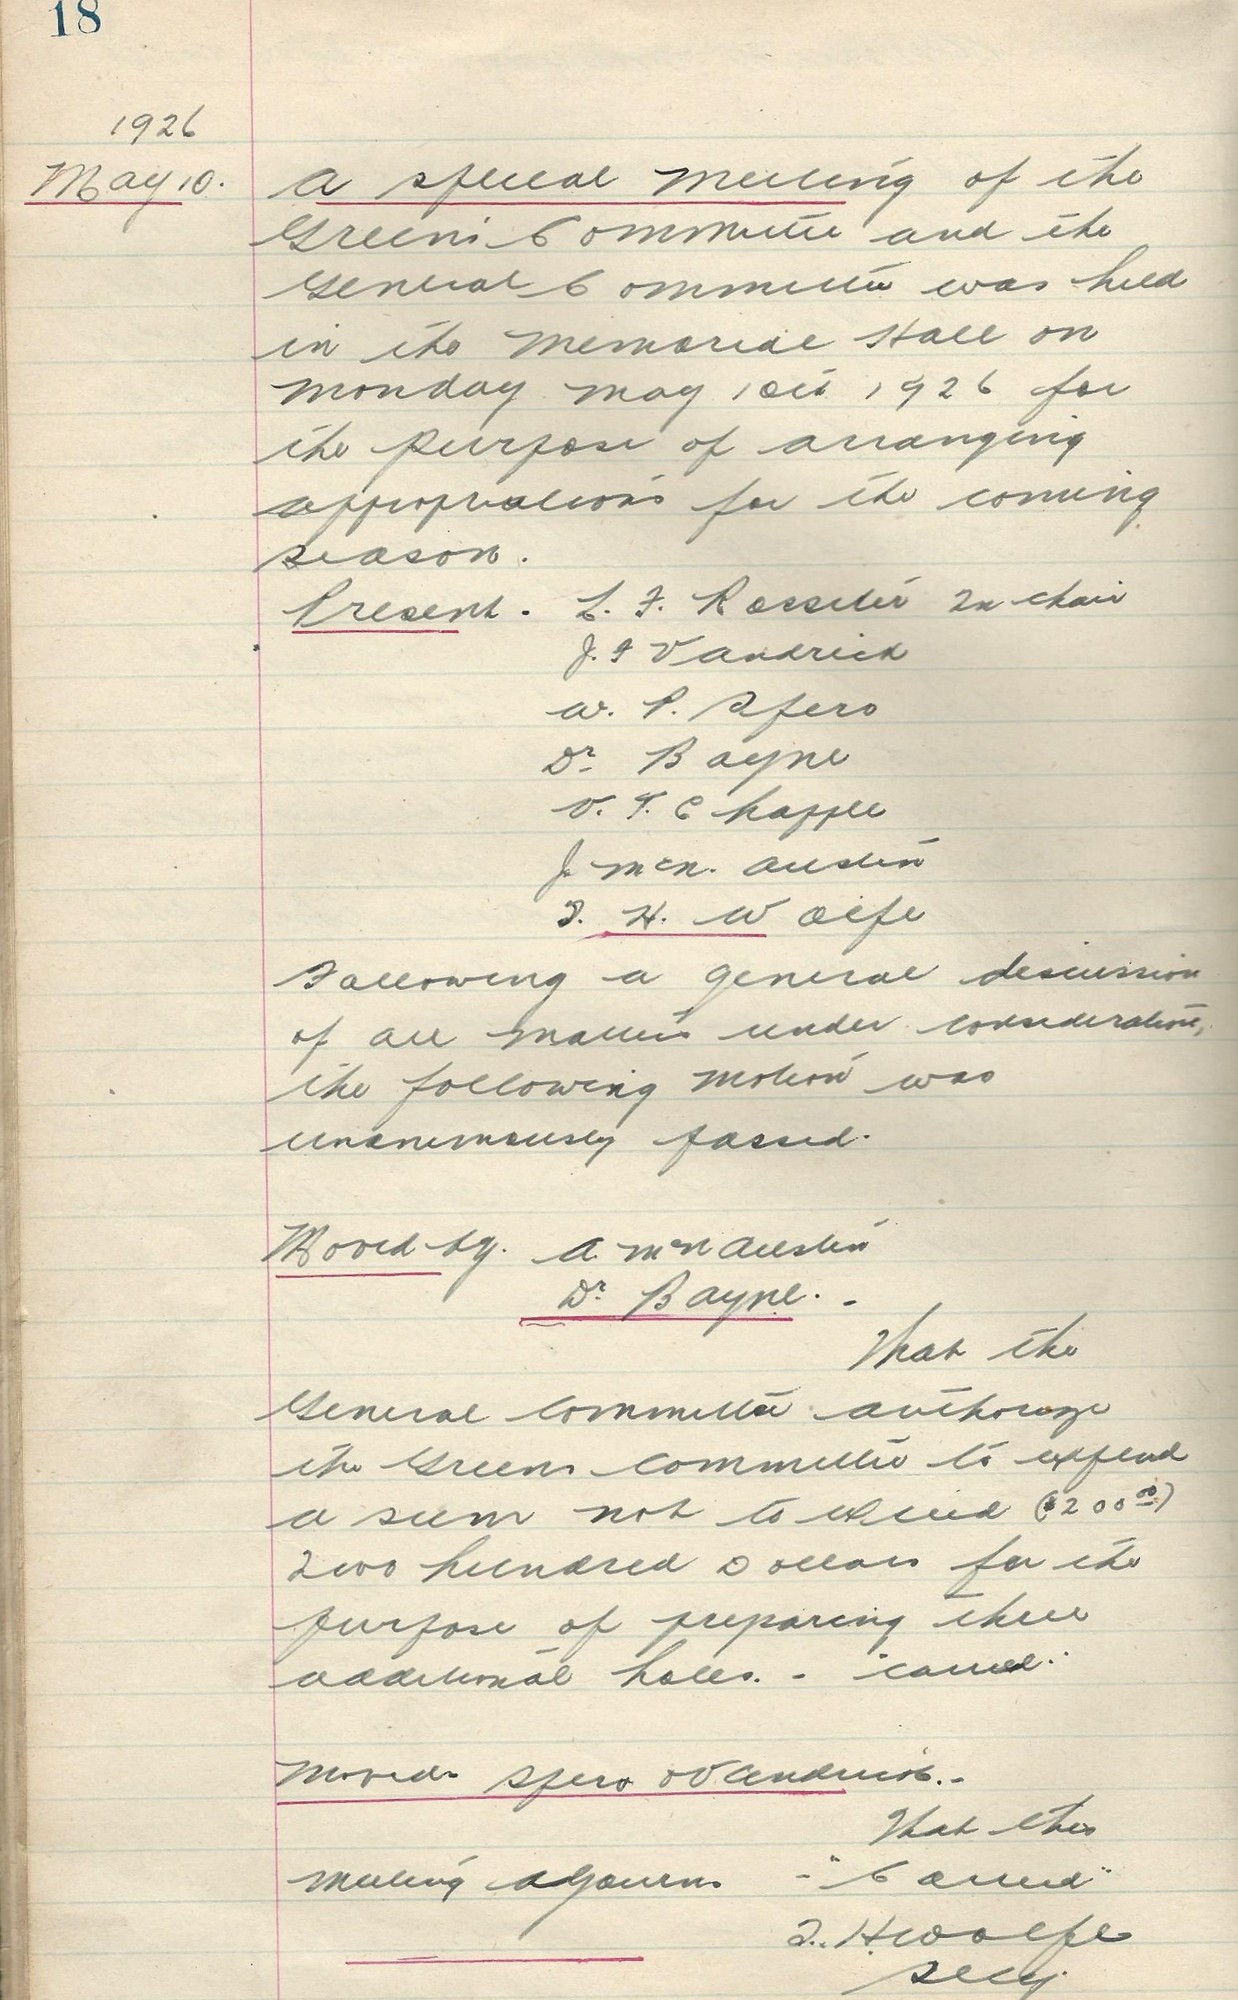 18
1926
May 10. A special meeting of the
Greens Committee and the
General Committee was held
in the Memorial Hall on
Monday May 10th 1926 for
the purpose of arranging
appropriations for the coming
season.
Present. L. F. Rosseter In chair
J. F Vandrick
W. P. Spero
Dr Bayne
V. T. Chapple
J. McN. Austin
T. H. Wolfe
Following a general discussion
of all matters under consideration,
the following motion was
unanimously passed.
Moved by. A. McN Austin
Dr Bayne. -
That the
General Committee authorize
the Greens Committee to expend
a sum not to exceed ($200 00)
Two hundred Dollars for the
purpose of preparing three
additional holes. - "carried"
Moved- Spero Vandrick. -
That this
meeting adjourns - "Carried"
T. H. Woolfe
Secy